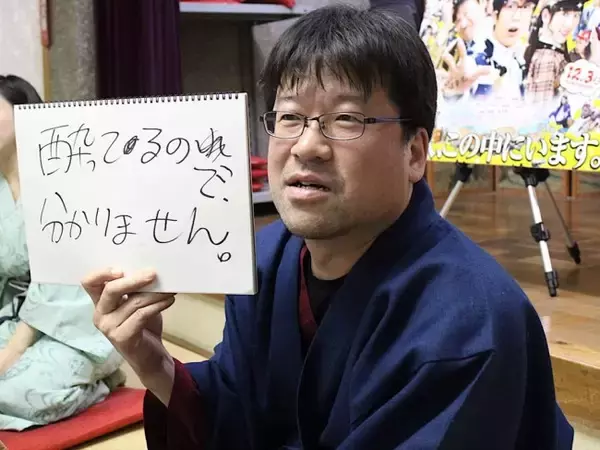 酔ってるので、
分かりません。
12.3
この中にいます。